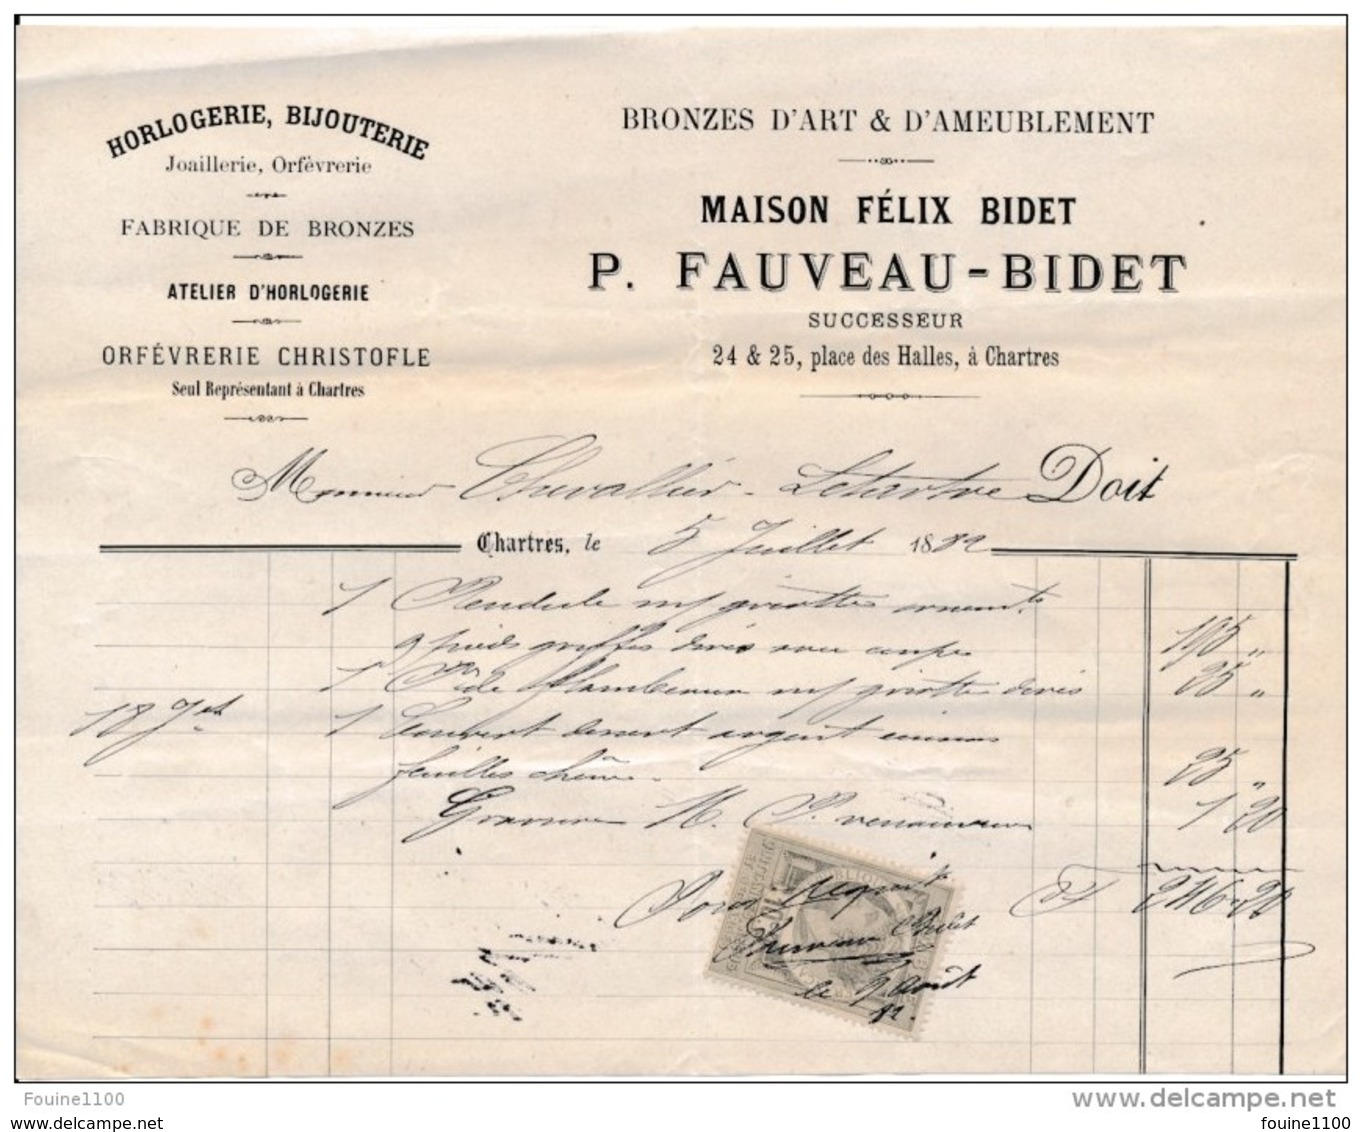 HORLOGERIE, BIJOUTERIE
Joaillerie, Orfévrerie
FABRIQUE DE BRONZES
ATELIER D'HORLOGERIE
ORFÉVRERIE CHRISTOFLE
Seul Représentant à Chartres
BRONZES D'ART & D'AMEUBLEMENT
MAISON FÉLIX BIDET
P. FAUVEAU-BIDET
SUCCESSEUR
24 & 25, place des Halles, à Chartres
Monsieur Chevallier - Letartre Doit
Chartres, le 5 Juillet 1882
1 Pendule griotte
pieds griffes avec coupe 195 "
1 Pr de flambeaux griotte 25 "
18 Jet 1 Couvert dessert argent
feuilles chêne 25 "
Gravure 1 20
Pour acquit Ft 246 20
Fauveau Bidet
le 9 Août
82.
Fouine1100
www.delcampe.net
fouine1100
fouine1100